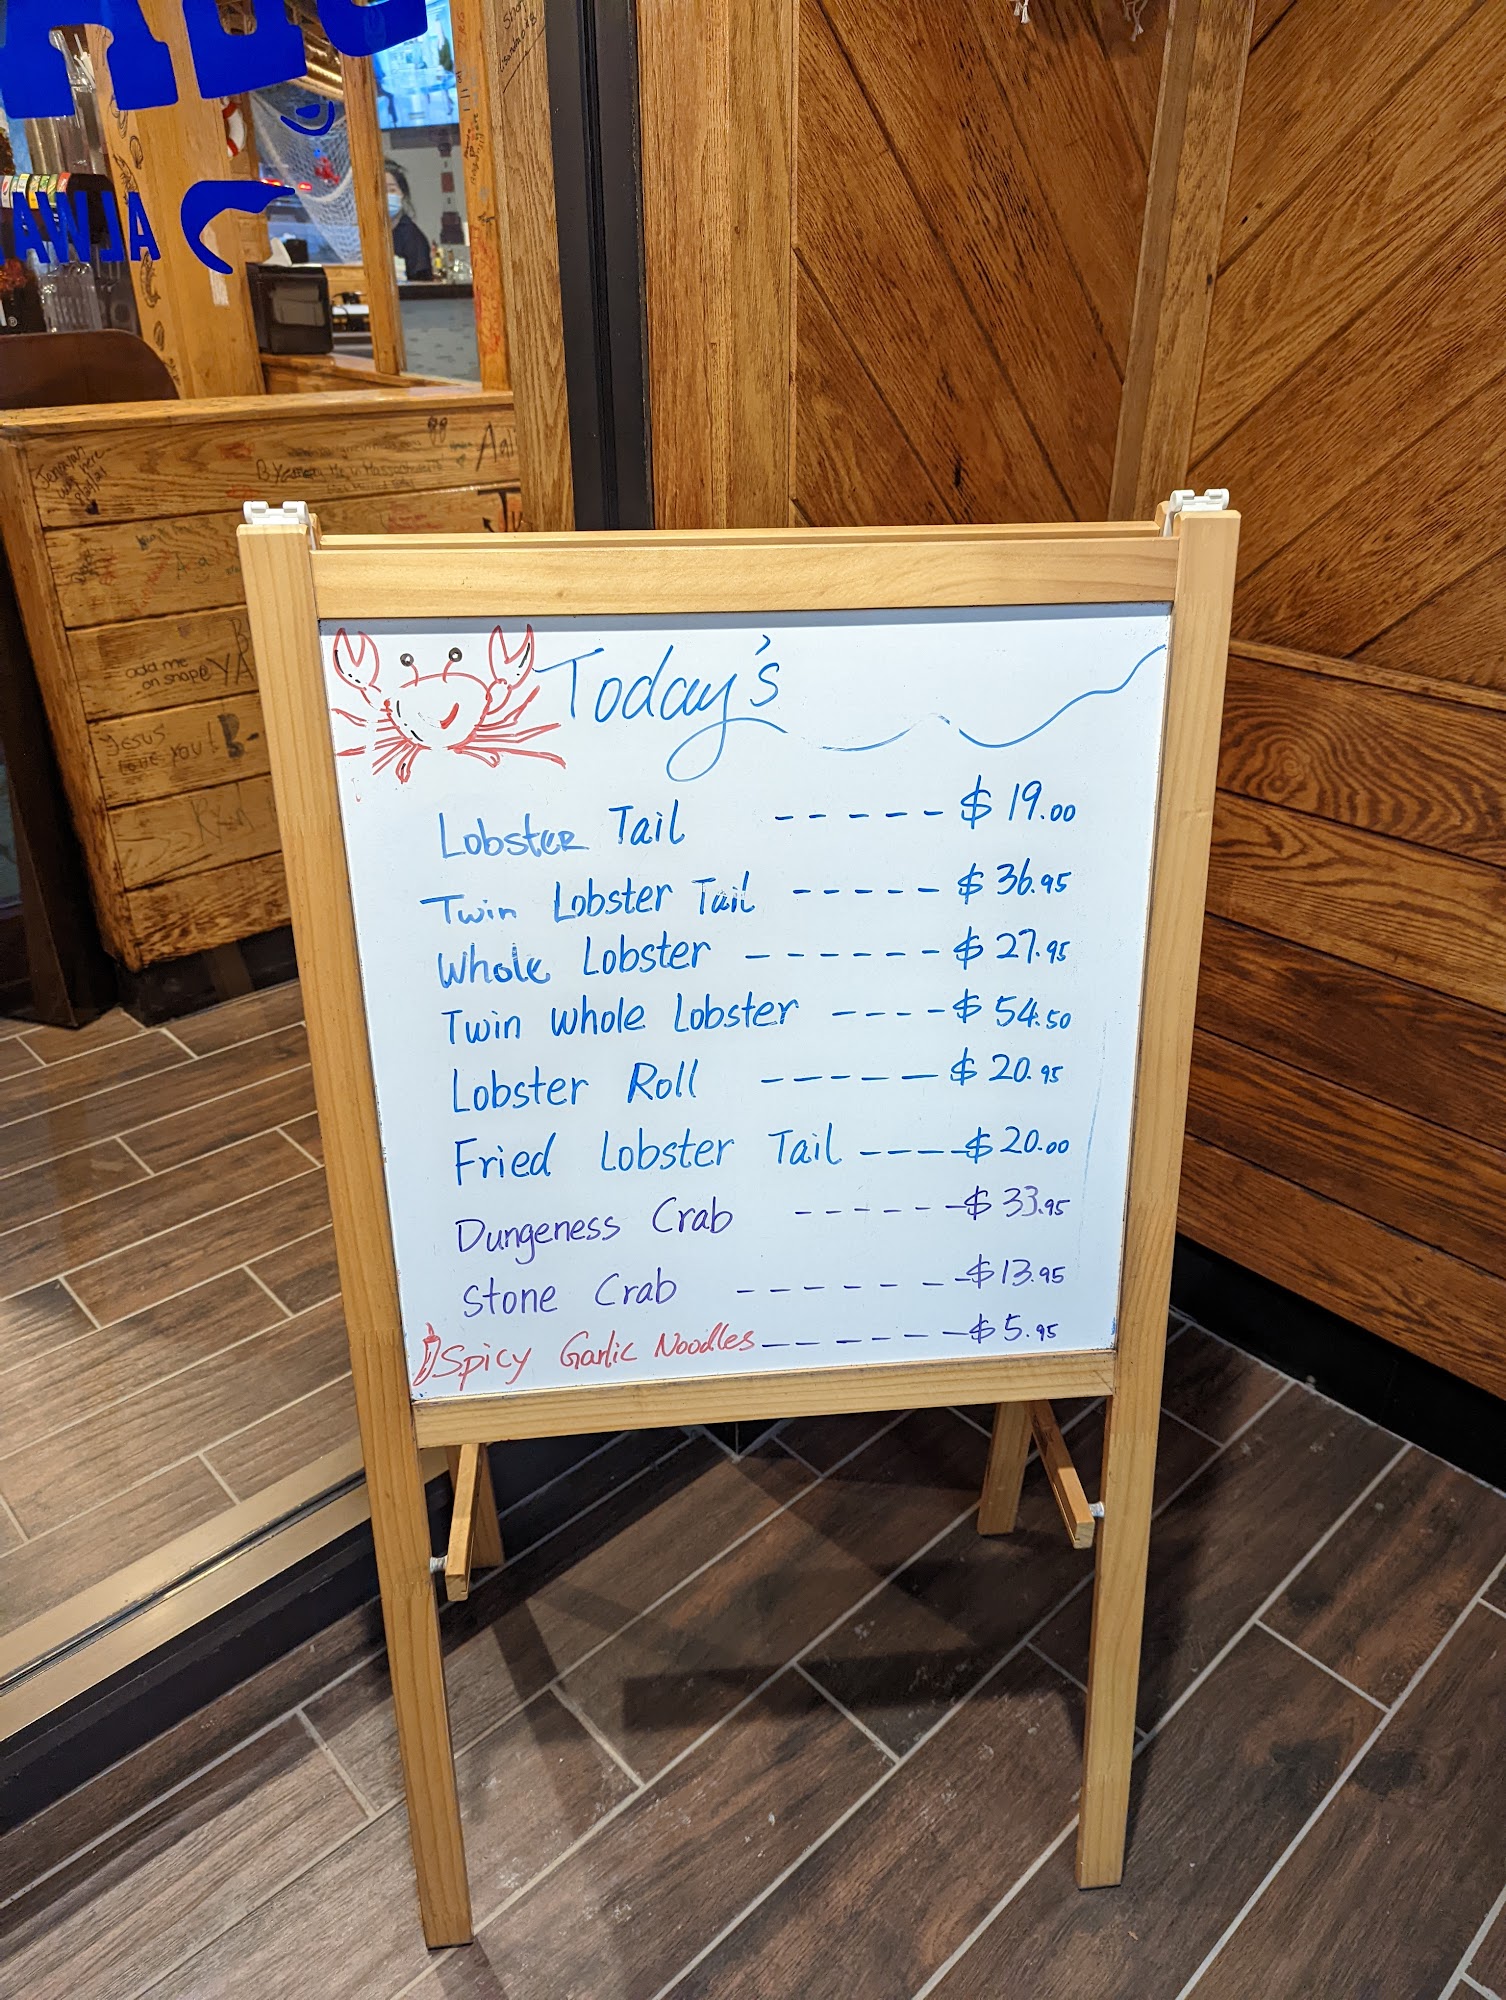 ALWA
Jesus
love you!
add me
on snap@
Today's
Lobster Tail ----- $19.00
Twin Lobster Tail ----- $36.95
Whole Lobster ------ $27.95
Twin whole Lobster ---- $54.50
Lobster Roll ------ $20.95
Fried Lobster Tail ---- $20.00
Dungeness Crab ------ $33.95
Stone Crab ------ $13.95
Spicy Garlic Noodles ------ $5.95